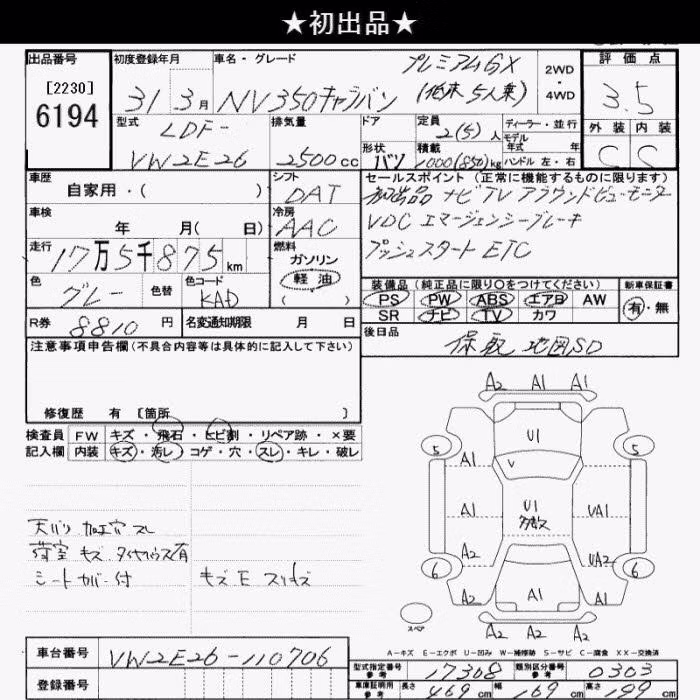 ★初出品★
出品番号
[2230]
6194
初度登録年月
31年3月
車名・グレード
プレミアムGX
NV350キャラバン (低床 5人乗)
2WD・4WD
評価点
3.5
外装 内装
C C
型式
LDF-
VW2E26
排気量
2500cc
ドア
形状
バン
定員
2(5)人
積載
1000(850)kg
ディーラー・並行
モデル年式 年
ハンドル 左・右
車歴
自家用・( )
シフト
DAT
セールスポイント(正常に機能するものに限ります)
初出品 ナビTV アラウンドビューモニター
VDC エマージェンシーブレーキ
プッシュスタート ETC
車検
年 月(日)
冷房
AAC
走行
17万5千875km
燃料
ガソリン
軽油
( )
色
グレー
色替
色コード
KAD
装備品(純正品に限り○をつけてください)
PS PW ABS エアB AW
SR ナビ TV カワ
新車保証書
有・無
R券
8810円
名変通知期限 月 日
後日品
保取 地図SD
注意事項申告欄(不具合内容等は具体的に記入して下さい)
修復歴 有 [箇所 ]
検査員記入欄
FW キズ・飛石・ヒビ割・リペア跡・×要
内装 キズ・汚レ・コゲ・穴・スレ・キレ・破レ
天バリ 加工穴 スレ
荷室 キズ タイヤハウス有
シートカバー付 キズ E スリキズ
A2 A1 A1
5 U1 5
A1 V A1
A1 U1 UA1
A2 UA2
6 A1 6
スペア
A2 A2 A2
A-キズ E-エクボ U-凹み W-補修跡 S-サビ C-腐食 XX-交換済
車台番号
VW2E26-110706
登録番号
型式指定番号
参考
17308
類別区分番号
参考
0303
車庫証明用
参考
長さ 469cm 幅 169cm 高さ 199cm